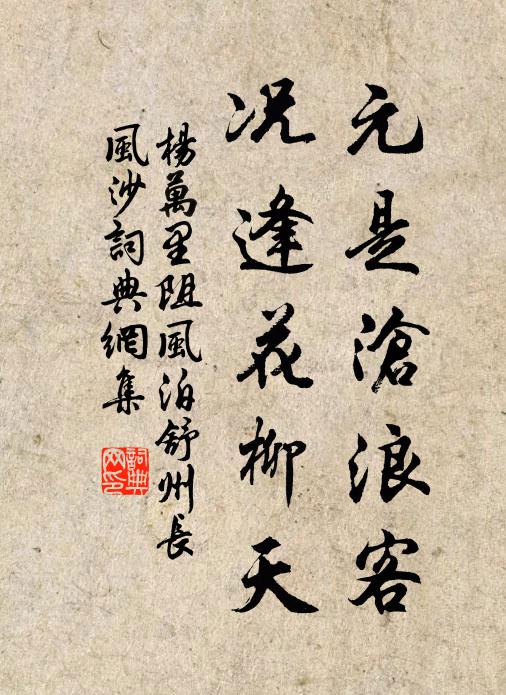 元是滄浪客
况逢花柳天
楊萬里阻風泊舒州長
風沙詞典網集
詞典
网印